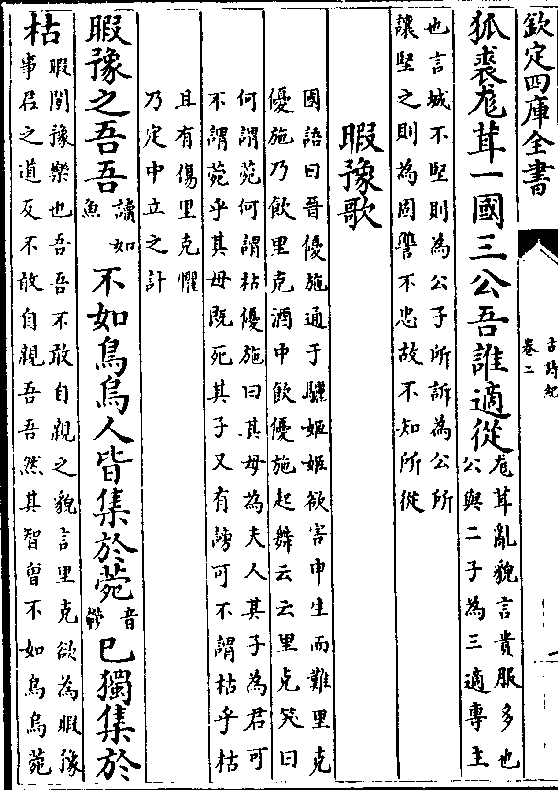 欽定四庫全書
古詩紀
卷二
狐裘尨茸一國三公吾誰適從
尨茸亂貌言貴服多也
公與二子為三適專主
也言城不堅則為公子所訴為公所
讓堅之則為固讐不忠故不知所從
暇豫歌
國語曰晉優施通于驪姬姬欲害申生而難里克
優施乃飲里克酒中飲優施起舞云云里克笑曰
何謂菀何謂枯優施曰其母為夫人其子為君可
不謂菀乎其母既死其子又有謗可不謂枯乎枯
且有傷里克懼
乃定中立之計
暇豫之吾吾讀如魚不如鳥烏人皆集於菀音鬱已獨集於
枯
暇閒豫樂也吾吾不敢自親之貌言里克欲為暇豫
事君之道反不敢自親吾吾然其智曾不如鳥烏菀